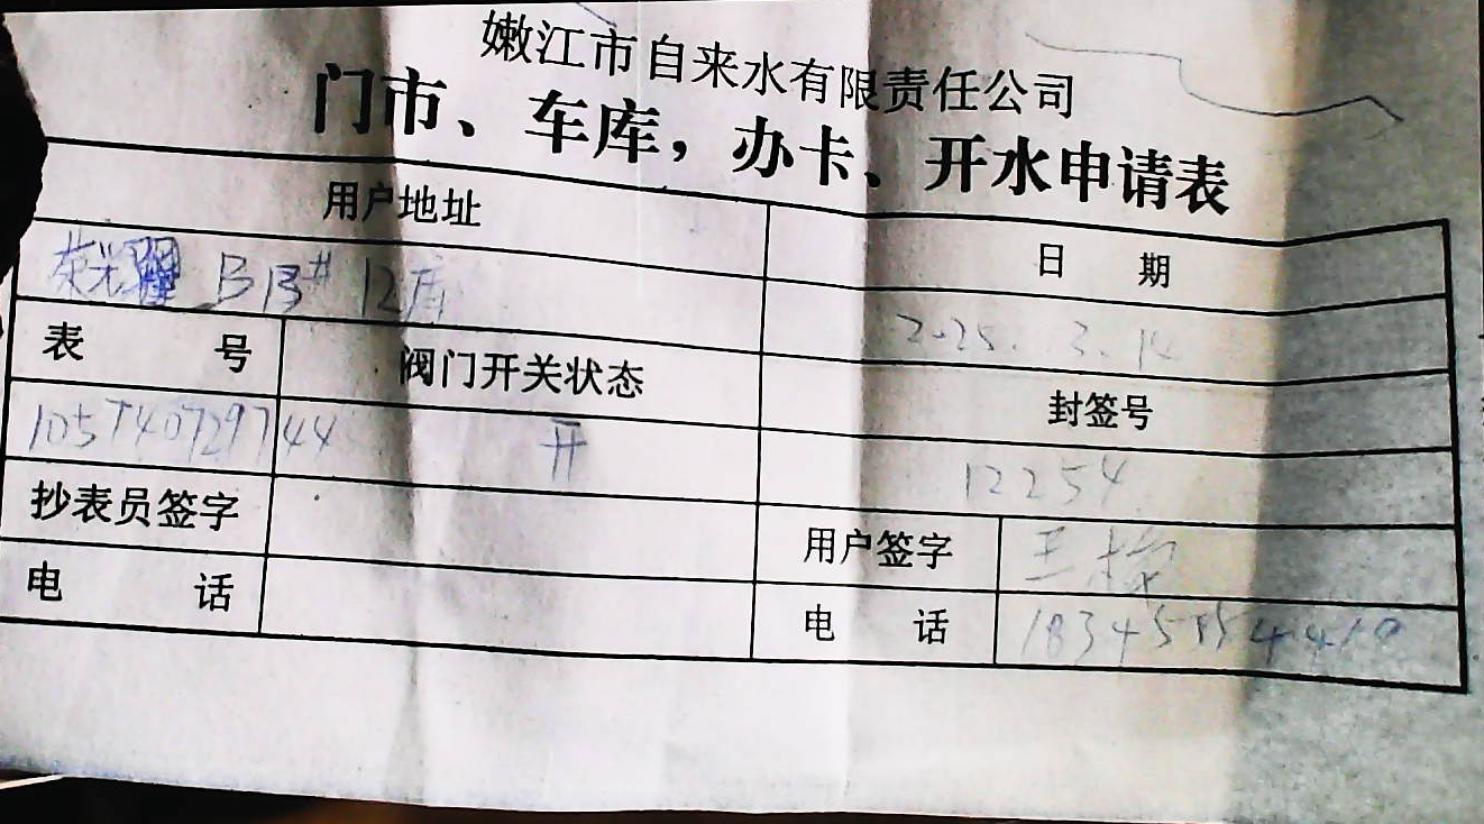 嫩江市自来水有限责任公司
门市、车库，办卡、开水申请表
用户地址
日 期
荣光 B B# 12库
2025. 3. 14
表 号
阀门开关状态
封签号
105740729744
开
12254
抄表员签字
用户签字
王
电 话
电 话